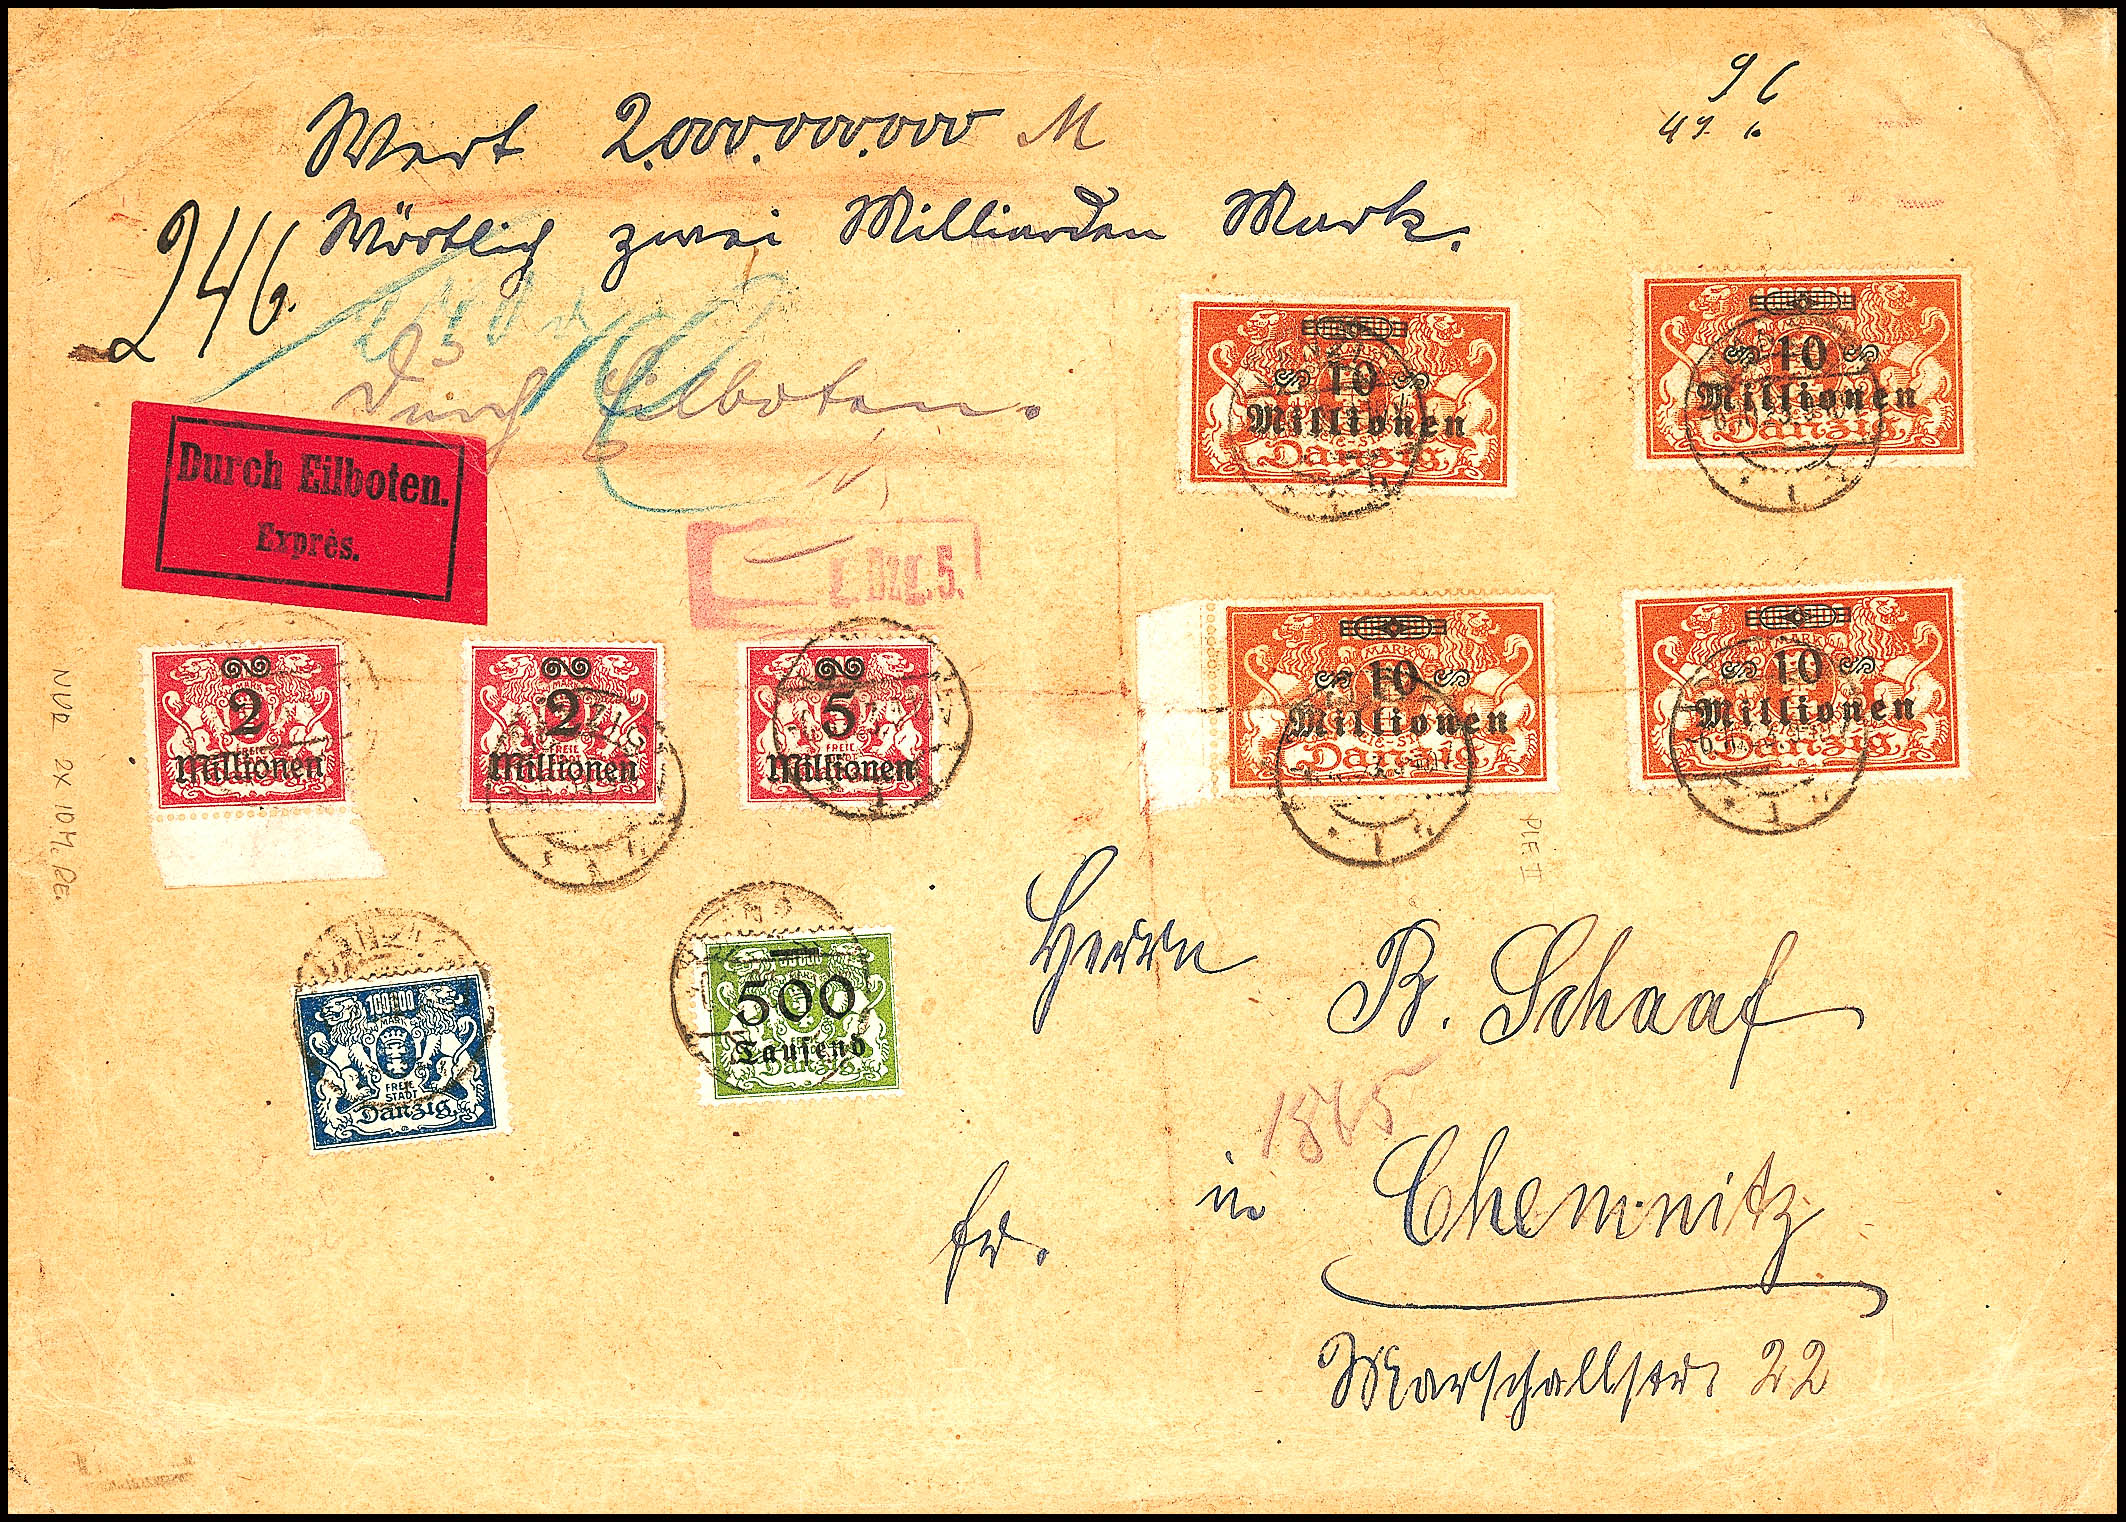 96
Wert 2.000.000.000 M
Wörtlich zwei Milliarden Mark.
246.
Durch Eilboten.
Durch Eilboten.
Exprès.
10
Millionen
Danzig
10
Millionen
Danzig
MARK
10
Millionen
Danzig
MARK
10
Millionen
Danzig
2
Millionen
2
Millionen
FREIE
5
Millionen
FREIE
NUR 2X 10M. RE.
PLF. II
100000
MARK
FREIE
STADT
Danzig
500
Tausend
Danzig
Herrn
B. Schaaf
1865
in Chemnitz
fr.
Marschallstr. 22